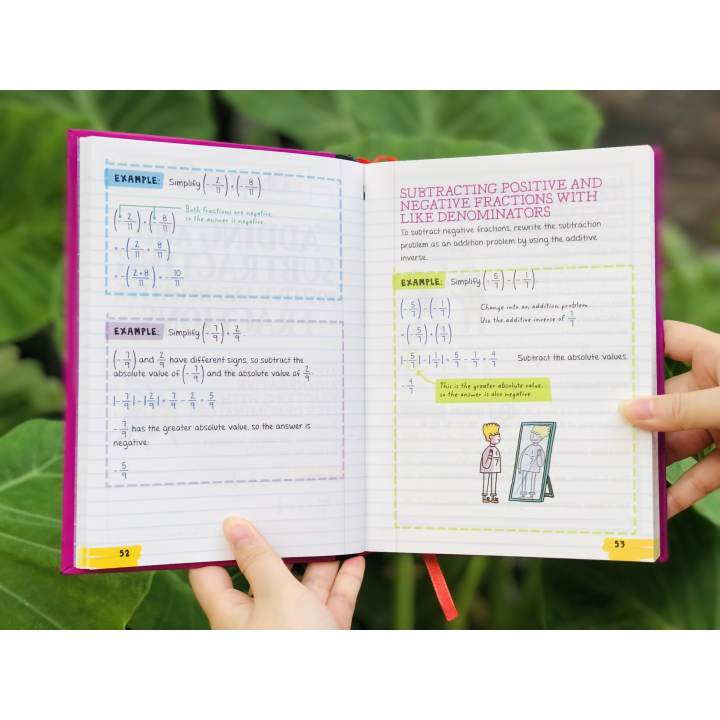 EXAMPLE: Simplify (-2/11) + (-8/11)
(-2/11) + (-8/11) Both fractions are negative,
so the answer is negative.
= -(2/11 + 8/11)
= -(2+8/11) = -10/11
EXAMPLE: Simplify (-7/9) + 2/9
(-7/9) and 2/9 have different signs, so subtract the
absolute value of (-7/9) and the absolute value of 2/9.
|-7/9| - |2/9| = 7/9 - 2/9 = 5/9
-7/9 has the greater absolute value, so the answer is
negative:
-5/9
52
SUBTRACTING POSITIVE AND
NEGATIVE FRACTIONS WITH
LIKE DENOMINATORS
To subtract negative fractions, rewrite the subtraction
problem as an addition problem by using the additive
inverse.
EXAMPLE: Simplify (-5/7) - (-1/7)
(-5/7) - (-1/7) Change into an addition problem.
= (-5/7) + (1/7) Use the additive inverse of 1/7.
|-5/7| - |1/7| = 5/7 - 1/7 = 4/7 Subtract the absolute values.
-4/7 This is the greater absolute value,
so the answer is also negative.
53